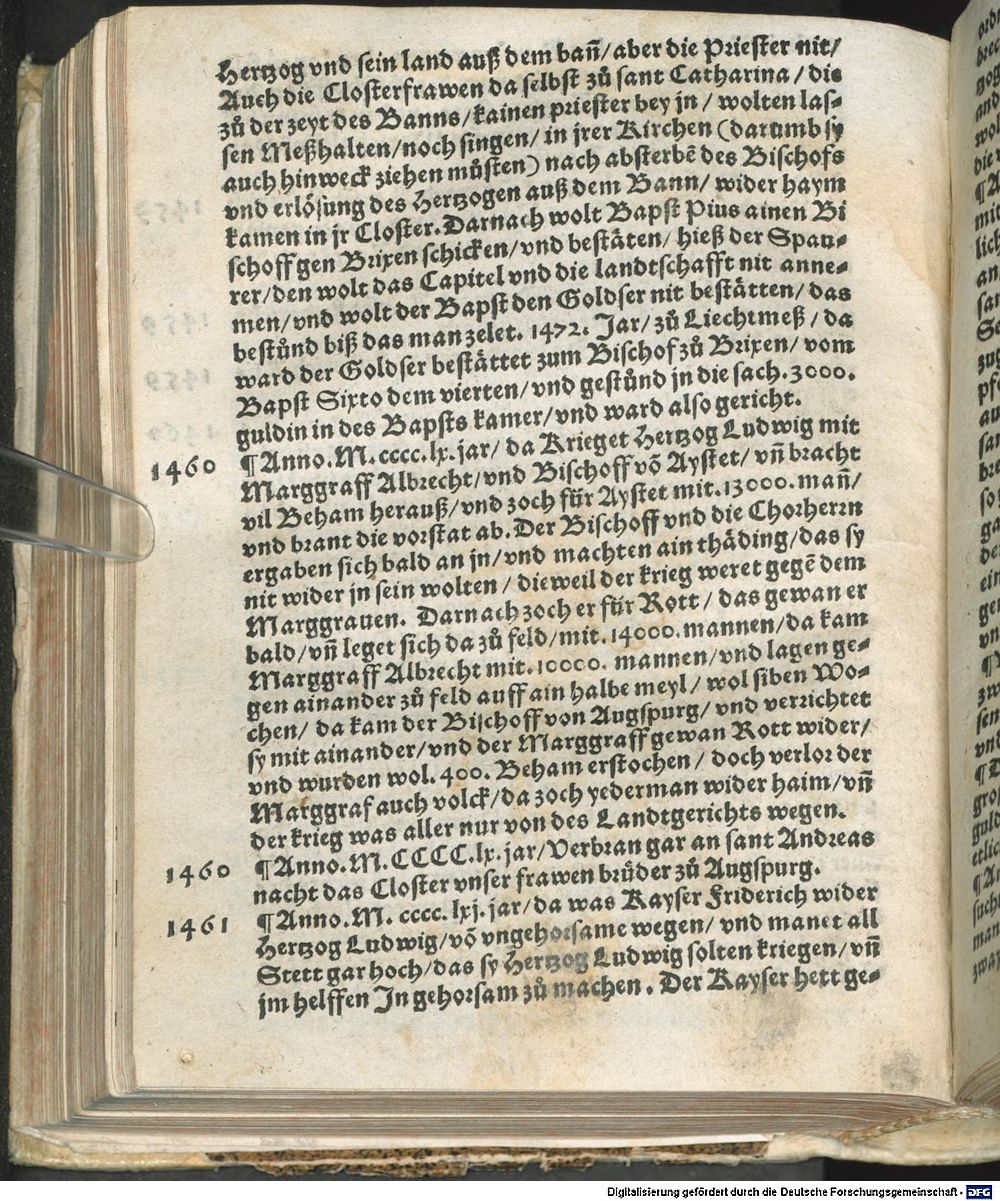 Hertzog vnd sein land auß dem bañ/aber die Priester nit/
Auch die Closterfrawen da selbst zů sant Catharina/die
zů der zeyt des Banns/kainen priester bey jn/wolten las-
sen Meßhalten/noch singen/in jrer Kirchen (darumb sy
auch hinweck ziehen můsten) nach absterbẽ des Bischofs
vnd erlösung des Hertzogen auß dem Bann/wider haym
kamen in jr Closter. Darnach wolt Bapst Pius ainen Bi
schoff gen Brixen schicken/vnd bestäten/hieß der Spau-
rer/den wolt das Capitel vnd die landtschafft nit anne-
men/vnd wolt der Bapst den Goldser nit bestätten/das
bestůnd biß das man zelet. 1472. Jar/zů Liechtmeß/da
ward der Goldser bestättet zum Bischof zů Brixen/vom
Bapst Sixto dem vierten/vnd gestůnd jn die sach. 3000.
guldin in des Bapsts kamer/vnd ward also gericht.
1460 ¶Anno. M. cccc. lx. jar/da Krieget Hertzog Ludwig mit
Marggraff Albrecht/vnd Bischoff võ Aystet/vñ bracht
vil Beham herauß/vnd zoch für Aystet mit. 13000. mañ/
vnd brant die vorstat ab. Der Bischoff vnd die Chorherrn
ergaben sich bald an jn/vnd machten ain thäding/das sy
nit wider jn sein wolten/dieweil der krieg weret gegẽ dem
Marggrauen. Darnach zoch er für Rott/das gewan er
bald/vñ leget sich da zů feld/mit. 14000. mannen/da kam
Marggraff Albrecht mit. 10000. mannen/vnd lagen ge-
gen ainander zů feld auff ain halbe meyl/wol siben Wo-
chen/da kam der Bischoff von Augspurg/vnd verrichtet
sy mit ainander/vnd der Marggraff gewan Rott wider/
vnd wurden wol. 400. Beham erstochen/doch verlor der
Marggraf auch volck/da zoch yederman wider haim/vñ
der krieg was aller nur von des Landtgerichts wegen.
1460 ¶Anno. M. CCCC. lx. jar/Verbran gar an sant Andreas
nacht das Closter vnser frawen brüder zů Augspurg.
1461 ¶Anno. M. cccc. lxj. jar/da was Kayser Friderich wider
Hertzog Ludwig/võ vngehorsame wegen/vnd manet all
Stett gar hoch/das sy Hertzog Ludwig solten kriegen/vñ
jm helffen Jn gehorsam zů machen. Der Kayser hett ge-
Digitalisierung gefördert durch die Deutsche Forschungsgemeinschaft - DFG